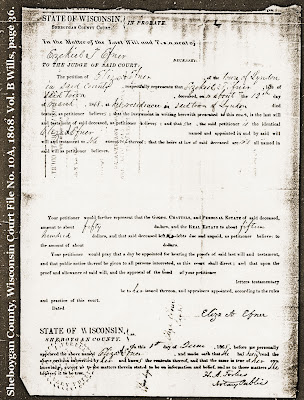 Sheboygan County, Wisconsin Court File No. 10A, 1868. Vol. B Wills, page 36.
STATE OF WISCONSIN,
SHEBOYGAN COUNTY COURT,
IN PROBATE.
In the Matter of the Last Will and Testament of
Ezekiel Efner
DECEASED.
TO THE JUDGE OF SAID COURT:
The petition of Eliza Efner of the town of Lyndon
in said County respectfully represents that Ezekiel Efner late of
said town deceased, on or about the 12th day of
March
died
as petitioner believes; that the instrument in writing herewith presented to this court, is the last will
and testament of said deceased, as petitioner believes; that the said petitioner is the identical
Eliza Efner named and appointed in and by said will
and testament thereof; that the heirs at law of said deceased are all named in
said will as petitioner believes.
Your petitioner would further represent that the GOODS, CHATTELS, AND PERSONAL ESTATE of said deceased,
amount to about fifty dollars, and the REAL ESTATE to about fifteen
hundred dollars, and that said deceased debts due and unpaid, as petitioner believes; to
the amount of about dollars.
Your petitioner would pray that a day be appointed for hearing the proofs of said last will and testament,
and that public notice thereof be given to all persons interested, as this court shall direct; and that upon the
proof and allowance of said will, and the approval of the bond of your petitioner
letters testamentary
be to her issued thereon, and appraisers appointed, according to the rules
and practice of this court.
Dated
Eliza Efner
STATE OF WISCONSIN,
SHEBOYGAN COUNTY.
On this 1st day of June 1868, before me personally
appeared the above named Eliza Efner, and made oath that she had heard read the
above petition subscribed by her and knows the contents thereof, and that the same is true of her own
knowledge, except as to the matters therein stated to be on information and belief, and as to those matters she
believes it to be true.
Notary Public